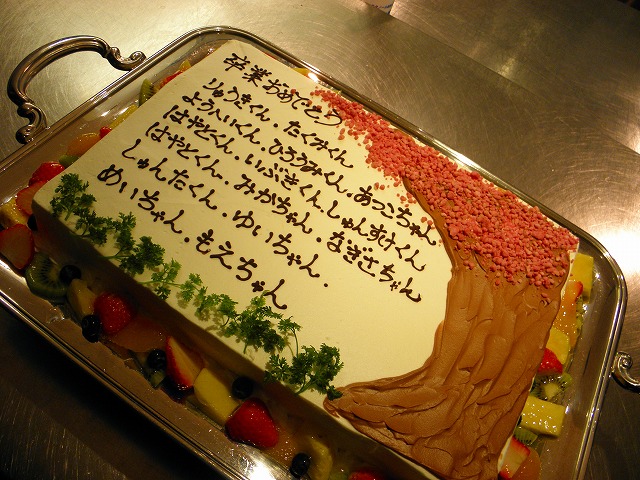 卒業おめでとう
りゅうきくん・たくみくん
ようへいくん・ひろうみくん・あつこちゃん
はやとくん・いぶきくん・しゅんすけくん
はやとくん・みかちゃん・まきさちゃん
しゅんたくん・ゆいちゃん・
めいちゃん・もえちゃん